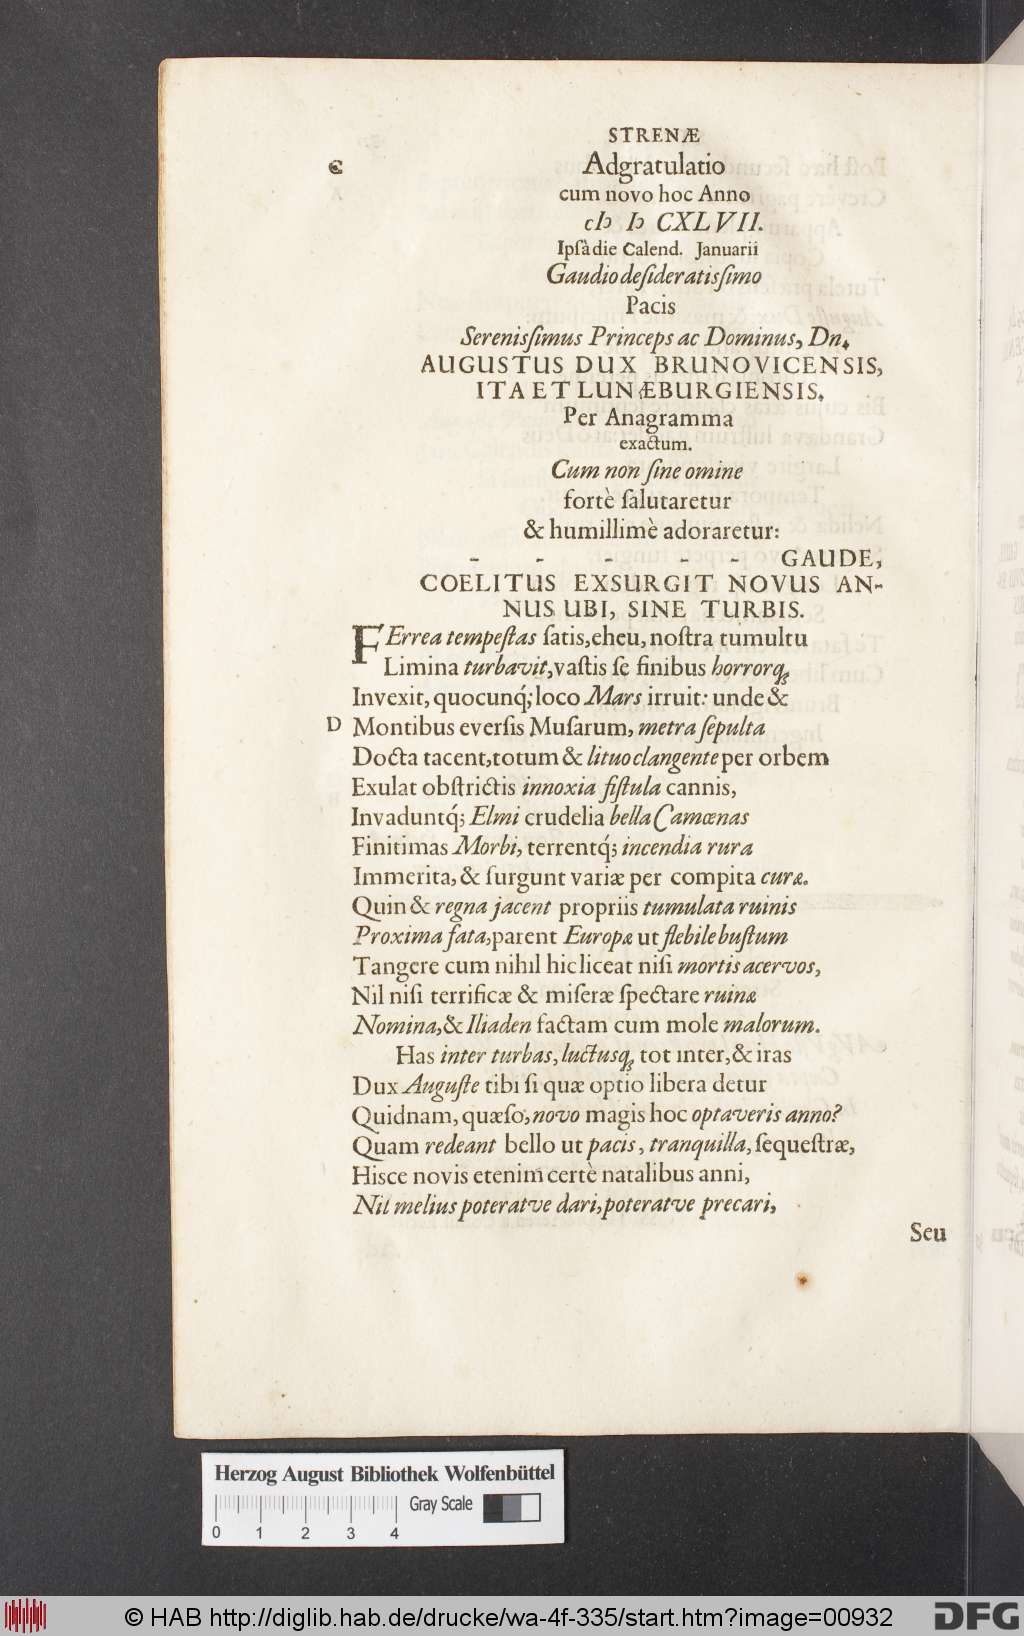 STRENÆ
C Adgratulatio
cum novo hoc Anno
cIↄ Iↄ CXLVII.
Ipſà die Calend. Januarii
Gaudio deſideratisſimo
Pacis
Serenisſimus Princeps ac Dominus, Dn.
AUGUSTUS DUX BRUNOVICENSIS,
ITA ET LUNÆBURGIENSIS,
Per Anagramma
exactum.
Cum non ſine omine
fortè ſalutaretur
& humillimè adoraretur:
- - - - - GAUDE,
COELITUS EXSURGIT NOVUS AN-
NUS UBI, SINE TURBIS.
FErrea tempeſtas ſatis, eheu, noſtra tumultu
Limina turbavit, vaſtis ſe finibus horrorq;
Invexit, quocunq́; loco Mars irruit: unde &
D Montibus everſis Muſarum, metra ſepulta
Docta tacent, totum & lituo clangente per orbem
Exulat obſtrictis innoxia fiſtula cannis,
Invaduntq́; Elmi crudelia bella Camœnas
Finitimas Morbi, terrentq́; incendia rura
Immerita, & ſurgunt variæ per compita curæ.
Quin & regna jacent propriis tumulata ruinis
Proxima fata, parent Europæ ut flebile buſtum
Tangere cum nihil hic liceat niſi mortis acervos,
Nil niſi terrificæ & miſeræ ſpectare ruinæ
Nomina, & Iliaden factam cum mole malorum.
Has inter turbas, luctusq; tot inter, & iras
Dux Auguſte tibi ſi quæ optio libera detur
Quidnam, quæſo, novo magis hoc optaveris anno?
Quam redeant bello ut pacis, tranquilla, ſequeſtræ,
Hisce novis etenim certè natalibus anni,
Nil melius poteratve dari, poteratve precari,
Seu
Herzog August Bibliothek Wolfenbüttel
Gray Scale
0 1 2 3 4
© HAB http://diglib.hab.de/drucke/wa-4f-335/start.htm?image=00932
DFG